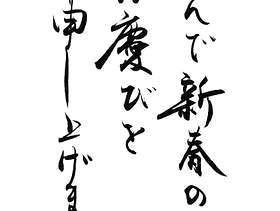 んで新春の
お慶びを
申し上げま